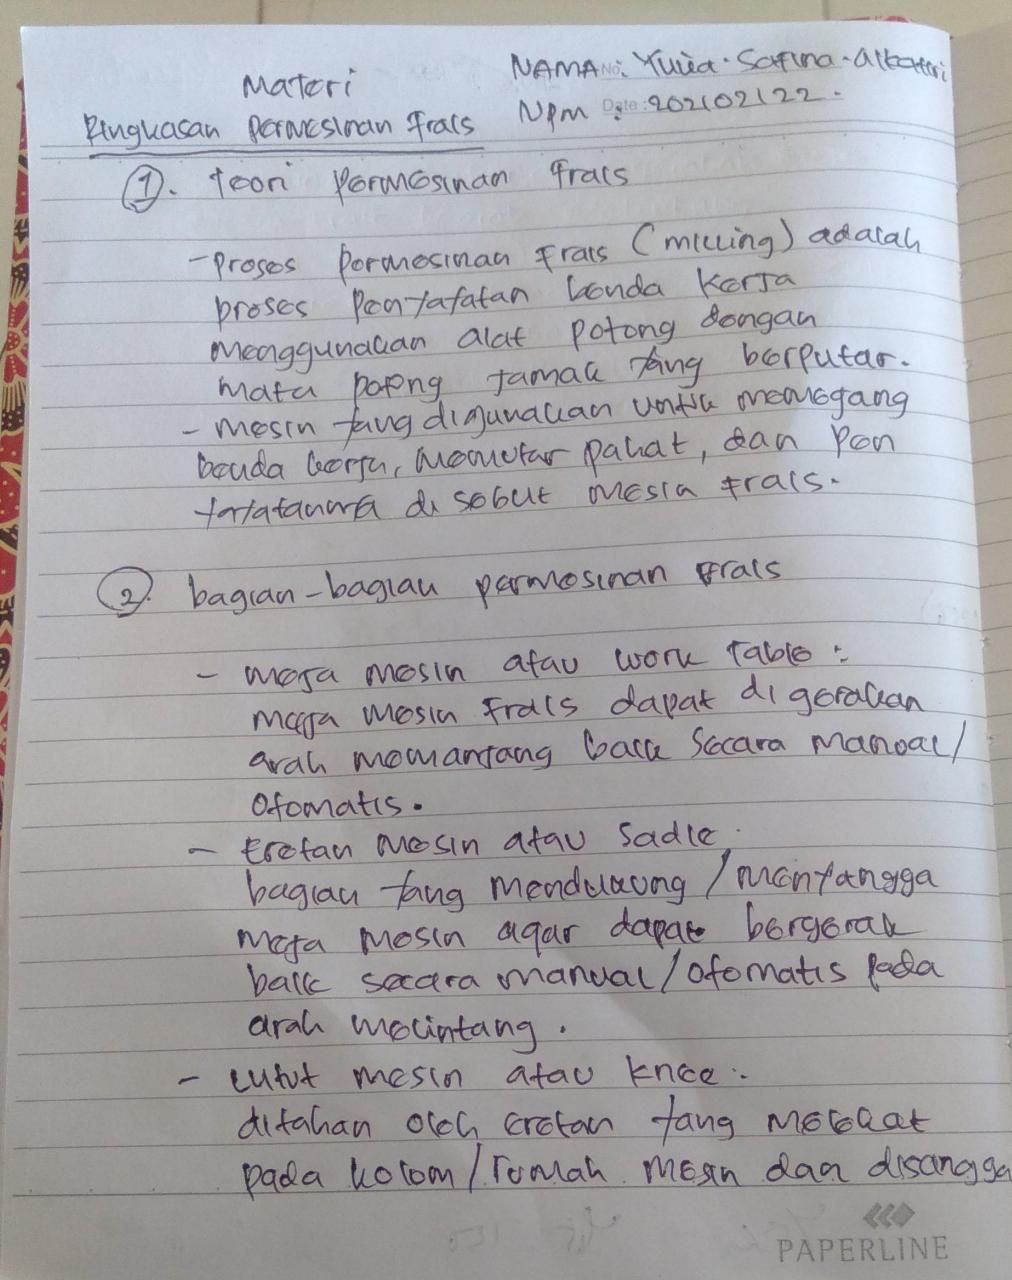 NAMA No: Yulia. Safina. alkatiri
Materi
NPM Date: 202102122.
Ringkasan Permesinan Frais
1. teori Permesinan Frais
- Proses Permesinan Frais (milling) adalah
proses Penyayatan benda Kerja
menggunakan alat potong dengan
mata potong jamak yang berputar.
- mesin yang digunakan untuk memegang
benda kerja, memutar pahat, dan Pen
yayatannya di sebut mesin Frais.
2. bagian-bagian permesinan Frais
- meja mesin atau work table :
meja mesin Frais dapat di gerakan
arah memanjang baik Secara Manual/
Otomatis.
- Eretan mesin atau Sadle
bagian yang mendukung / menyangga
meja mesin agar dapat bergerak
baik secara manual/otomatis pada
arah melintang.
- Lutut mesin atau knee :
ditahan oleh eretan yang melekat
pada kolom/rumah mesin dan disangga
PAPERLINE